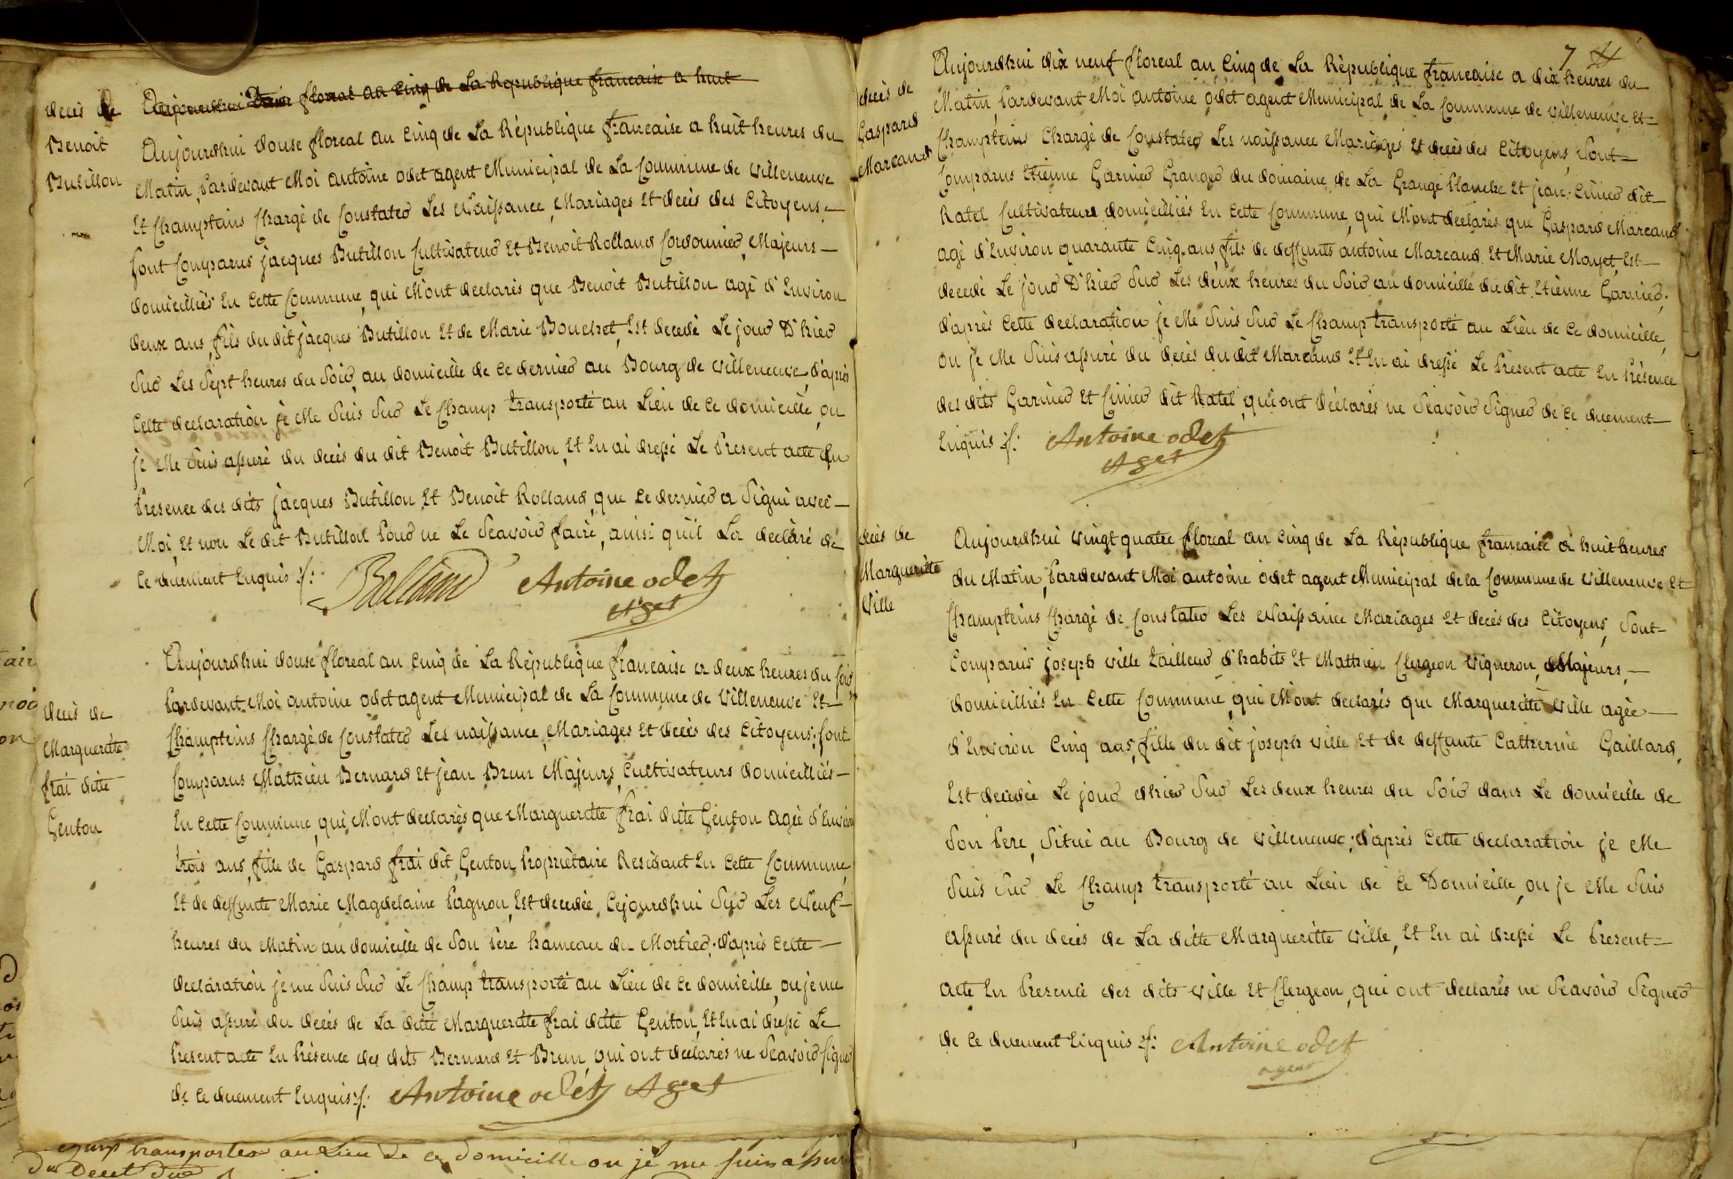 decès de
Benoit
Butillon
Aujourdhui Douse floreal an cinq de La Republique francaise a huit
Aujourdhui douse floreal an Cinq de La République francaise a huit heures du
Matin, Pardevant Moi antoine odet agent Municipal de La Commune de Villeneuve
Et Champteins Chargé de Constater Les Naissance, Mariages et decès des Citoyens
sont Comparus jacques Butillon Cultivateur Et Benoit Rolland Cordonnier, Majeurs
domiciliés En Cette Commune, qui M'ont declarés que Benoit Butillon agé d'Environ
deux ans, fils du dit jacques Butillon Et de Marie Bouchet, Est decedé Le jour D'hier
Sur Les Sept heures du Soir, au domicille de ce dernier au Bourg de Villeneuve, d'après
Cette declaration je Me Suis Sur Le Champ transporté au Lieu de Ce domicille, ou
je Me Suis assuré du decès du dit Benoit Butillon, Et En ai dressé Le Present acte En
Presence des dits jacques Butillon Et Benoit Rolland, que Ce dernier a Signé avec
Moi, Et non Le dit Butillon Pour ne Le Scavoir faire, ainsi qu'il La declaré de
Ce duement Enquis ./.
Rolland Antoine odet
Aget
decès de
Marguerite
frai ditte
Genton
Aujourdhui douse floreal an Cinq de La République francaise a deux heures du soir
Pardevant Moi antoine odet agent Municipal de La Commune de Villeneuve Et
Champteins Chargé de Constater Les naissance, Mariages Et decès des Citoyens, sont
Comparus Matthieu Bernard Et jean Brun Majeurs, Cultivateurs domiciliés
En Cette Commune, qui M'ont declarés que Marguerite frai ditte Genton agée d'Environ
trois ans, fille de Gaspard frai dit Genton, Propriètaire Residant En Cette Commune,
Et de deffunte Marie Magdelaine Pagnon, Est decedée Cejourdhui Sur Les Neuf
heures du Matin au domicille de Son Père hameau du Mortier; d'après Cette
declaration je me Suis Sur Le Champ transporté au Lieu de Ce domicille, ou je me
Suis assuré du decès de La ditte Marguerite frai ditte Genton, Et En ai dressé Le
Present acte En Présence des dits Bernard Et Brun, qui ont declarés ne Scavoir Signer
de Ce duement Enquis ./. Antoine odet Aget
champ transporter au Lieu de ce domicille ou je me suis assuré
du Decet du
7
decès de
Gaspard
Marcaud
Aujourdhui dix neuf floreal an Cinq de La République francaise a dix heures du
Matin, Pardevant Moi antoine odet agent Municipal de La Commune de Villeneuve Et
Champteins Chargé de Constater Les naissance Mariages Et decès des Citoyens, Sont
Comparus Etienne Garnier Granger du domaine de La Grange Blanche Et jean Cinier dit
Ratel Cultivateurs domiciliés En Cette Commune, qui M'ont declarés que Gaspard Marcaud
agé d'Environ quarante Cinq ans, fils de deffunts antoine Marcaud Et Marie Mayet, Est
decedé Le jour D'hier Sur Les deux heures du Soir au domicille du dit Etienne Garnier,
d'après Cette declaration je Me Suis Sur Le Champ transporté au Lieu de Ce domicille,
ou je Me Suis assuré du decès du dit Marcaud Et En ai dressé Le Present acte En Présence
des dits Garnier Et Cinier dit Ratel, qui ont déclarés ne Scavoir Signer de Ce duement
Enquis ./. Antoine odet
Aget
decès de
Margueritte
Ville
Aujourdhui Vingt quatre floreal an Cinq de La République francaise a huit heures
du Matin, Pardevant Moi antoine odet agent Municipal de la Commune de Villeneuve Et
Champteins Chargé de Constater Les Naissance Mariages Et decès des Citoyens, Sont
Comparus joseph Ville tailleur d'habits Et Matthieu Clergeon Vigneron, Majeurs,
domiciliés En Cette Commune, qui M'ont declarés que Margueritte Ville agée
d'Environ Cinq ans, fille du dit joseph Ville Et de deffunte Catherine Gaillard,
Est decedée Le jour d'hier Sur Les deux heures du Soir dans Le domicille de
Son Pere, Situé au Bourg de Villeneuve; d'après Cette declaration je Me
Suis Sur Le Champ transporté au Lieu de Ce Domicille, ou je Me Suis
assuré du decès de La ditte Margueritte Ville, Et En ai dressé Le Present
acte En Presence des dits Ville Et Clergeon, qui ont declarés ne Scavoir Signer
de Ce duement Enquis ./. Antoine odet
agent